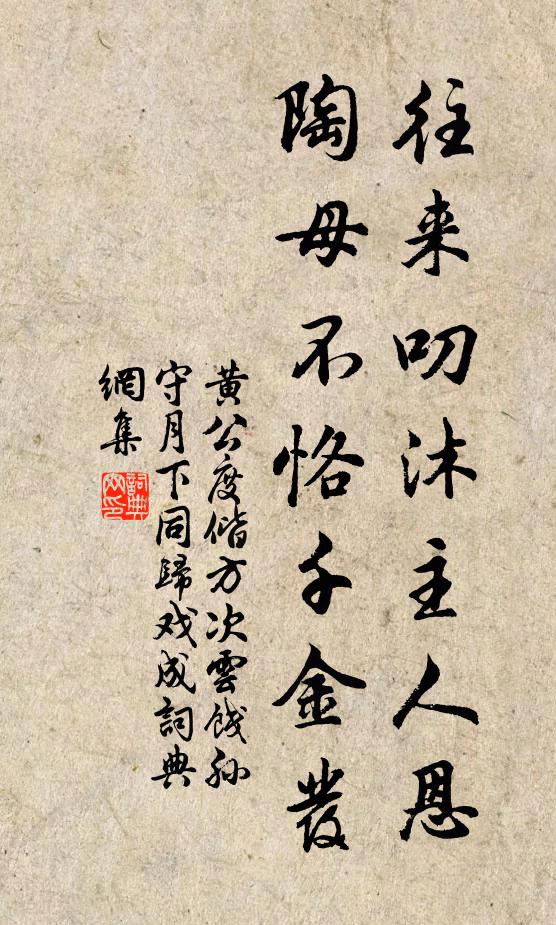 往来叨沐主人恩
陶母不恡千金髮
黄公度偕方次雲餞孙
守月下同歸戏成詞典
網集
詞典
网印